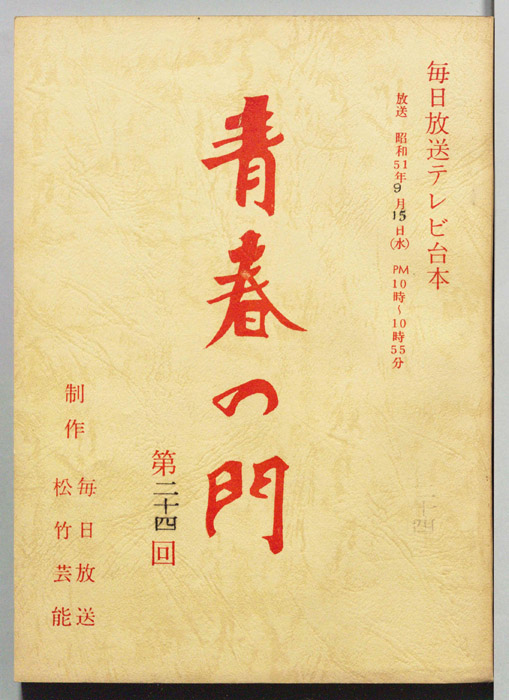 毎日放送テレビ台本
放送 昭和51年9月15日(水) PM10時～10時55分
青春の門
第二十四回
制作 毎日放送
松竹芸能
二十四